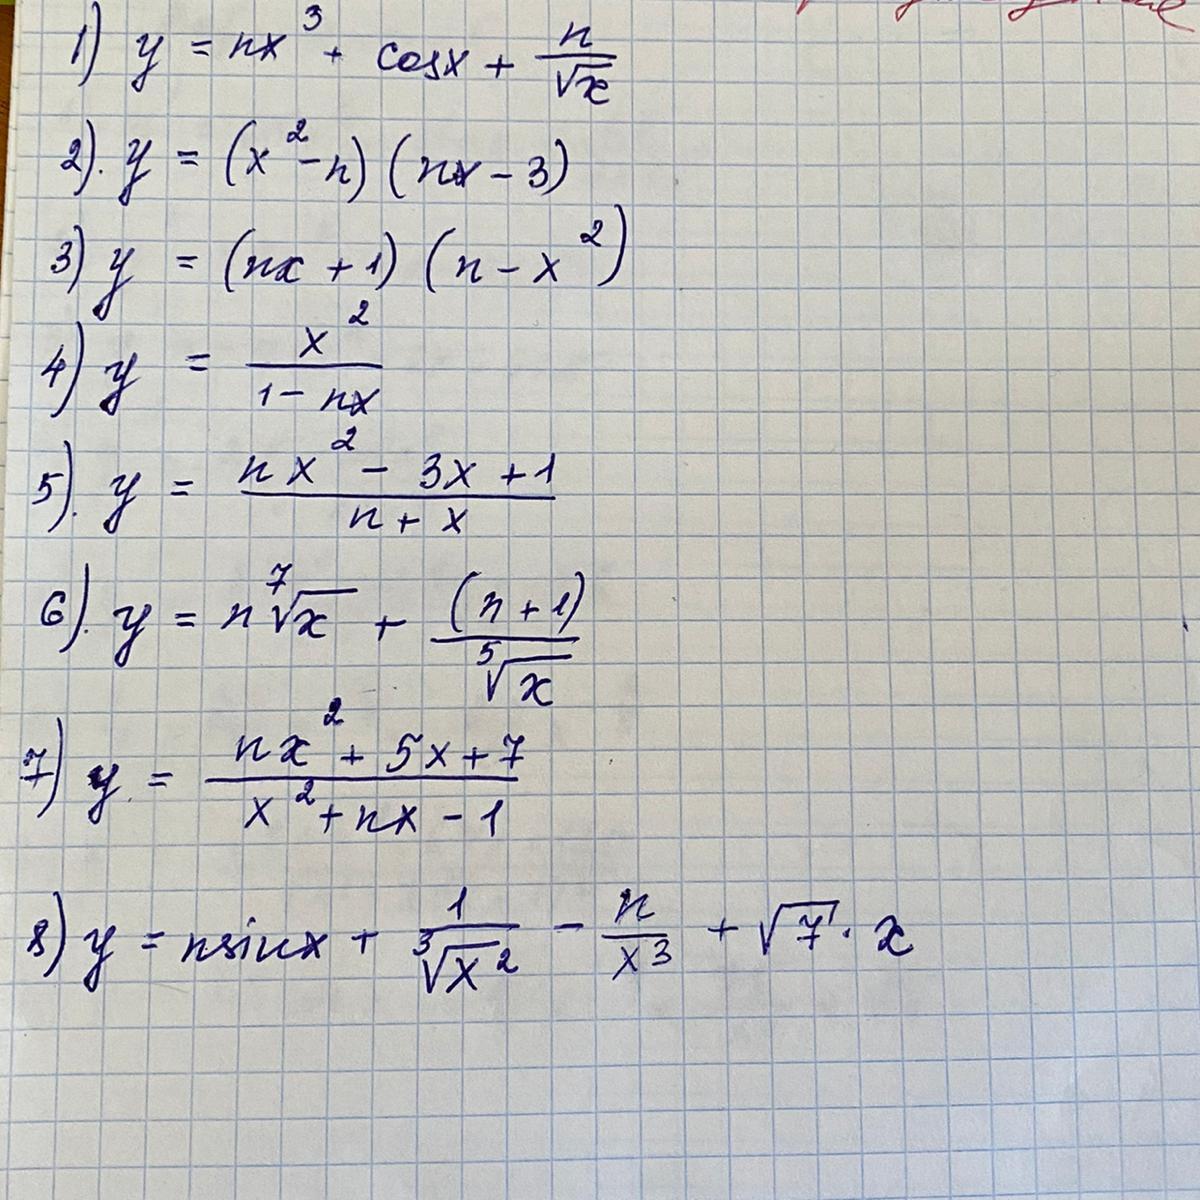 1) y = nx³ + cosx + n/√x
2). y = (x² - n) (nx - 3)
3) y = (nx + 1) (n - x²)
4) y = x²/(1 - nx)
5). y = (nx² - 3x + 1)/(n + x)
6). y = n ⁷√x + (n + 1)/⁵√x
7) y = (nx² + 5x + 7)/(x² + nx - 1)
8) y = nsinx + 1/³√x² - n/x³ + √7 · x